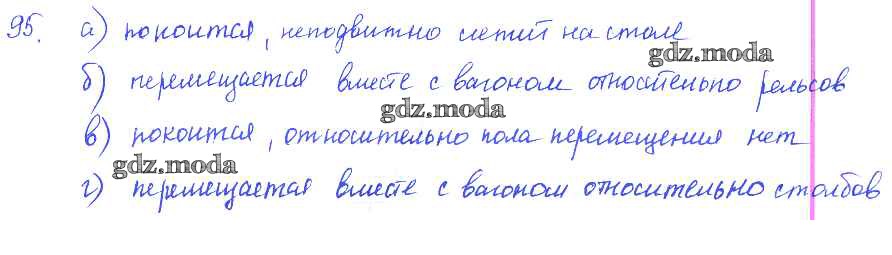 95. а) покоится, неподвижно лежит на столе
gdz.moda
б) перемещается вместе с вагоном относительно рельсов
gdz.moda
в) покоится, относительно пола перемещения нет
gdz.moda
г) перемещается вместе с вагоном относительно столбов